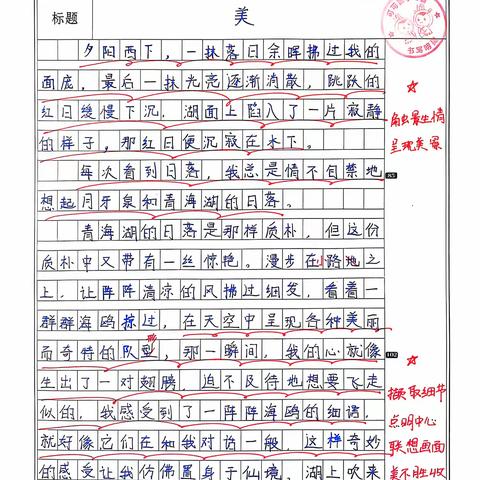 标题
美
夕阳西下，一抹落日余晖拂过我的
面庞，最后一抹光亮逐渐消散，跳跃的
红日缓慢下沉，湖面上陷入了一片寂静
的样子，那红日便沉寂在水下。
每次看到日落，我总是情不自禁地
想起月牙泉和青海湖的日落。
青海湖的日落是那样质朴，但这份
质朴中又带有一丝惊艳。漫步在小路地之
上，让阵阵清凉的风拂过细发，看着一
群群海鸥掠过，在天空中呈现各种美丽
而奇特的队型，那一瞬间，我的心就像
生出了一对翅膀，迫不及待地想要飞走
似的，我感受到了一阵阵海鸥的细语，
就好像它们在和我对话一般，这样奇妙
的感受让我仿佛置身于仙境，湖上吹来
触景生情
呈现美景
85
102
撷取细节
点明中心
联想画面
美不胜收